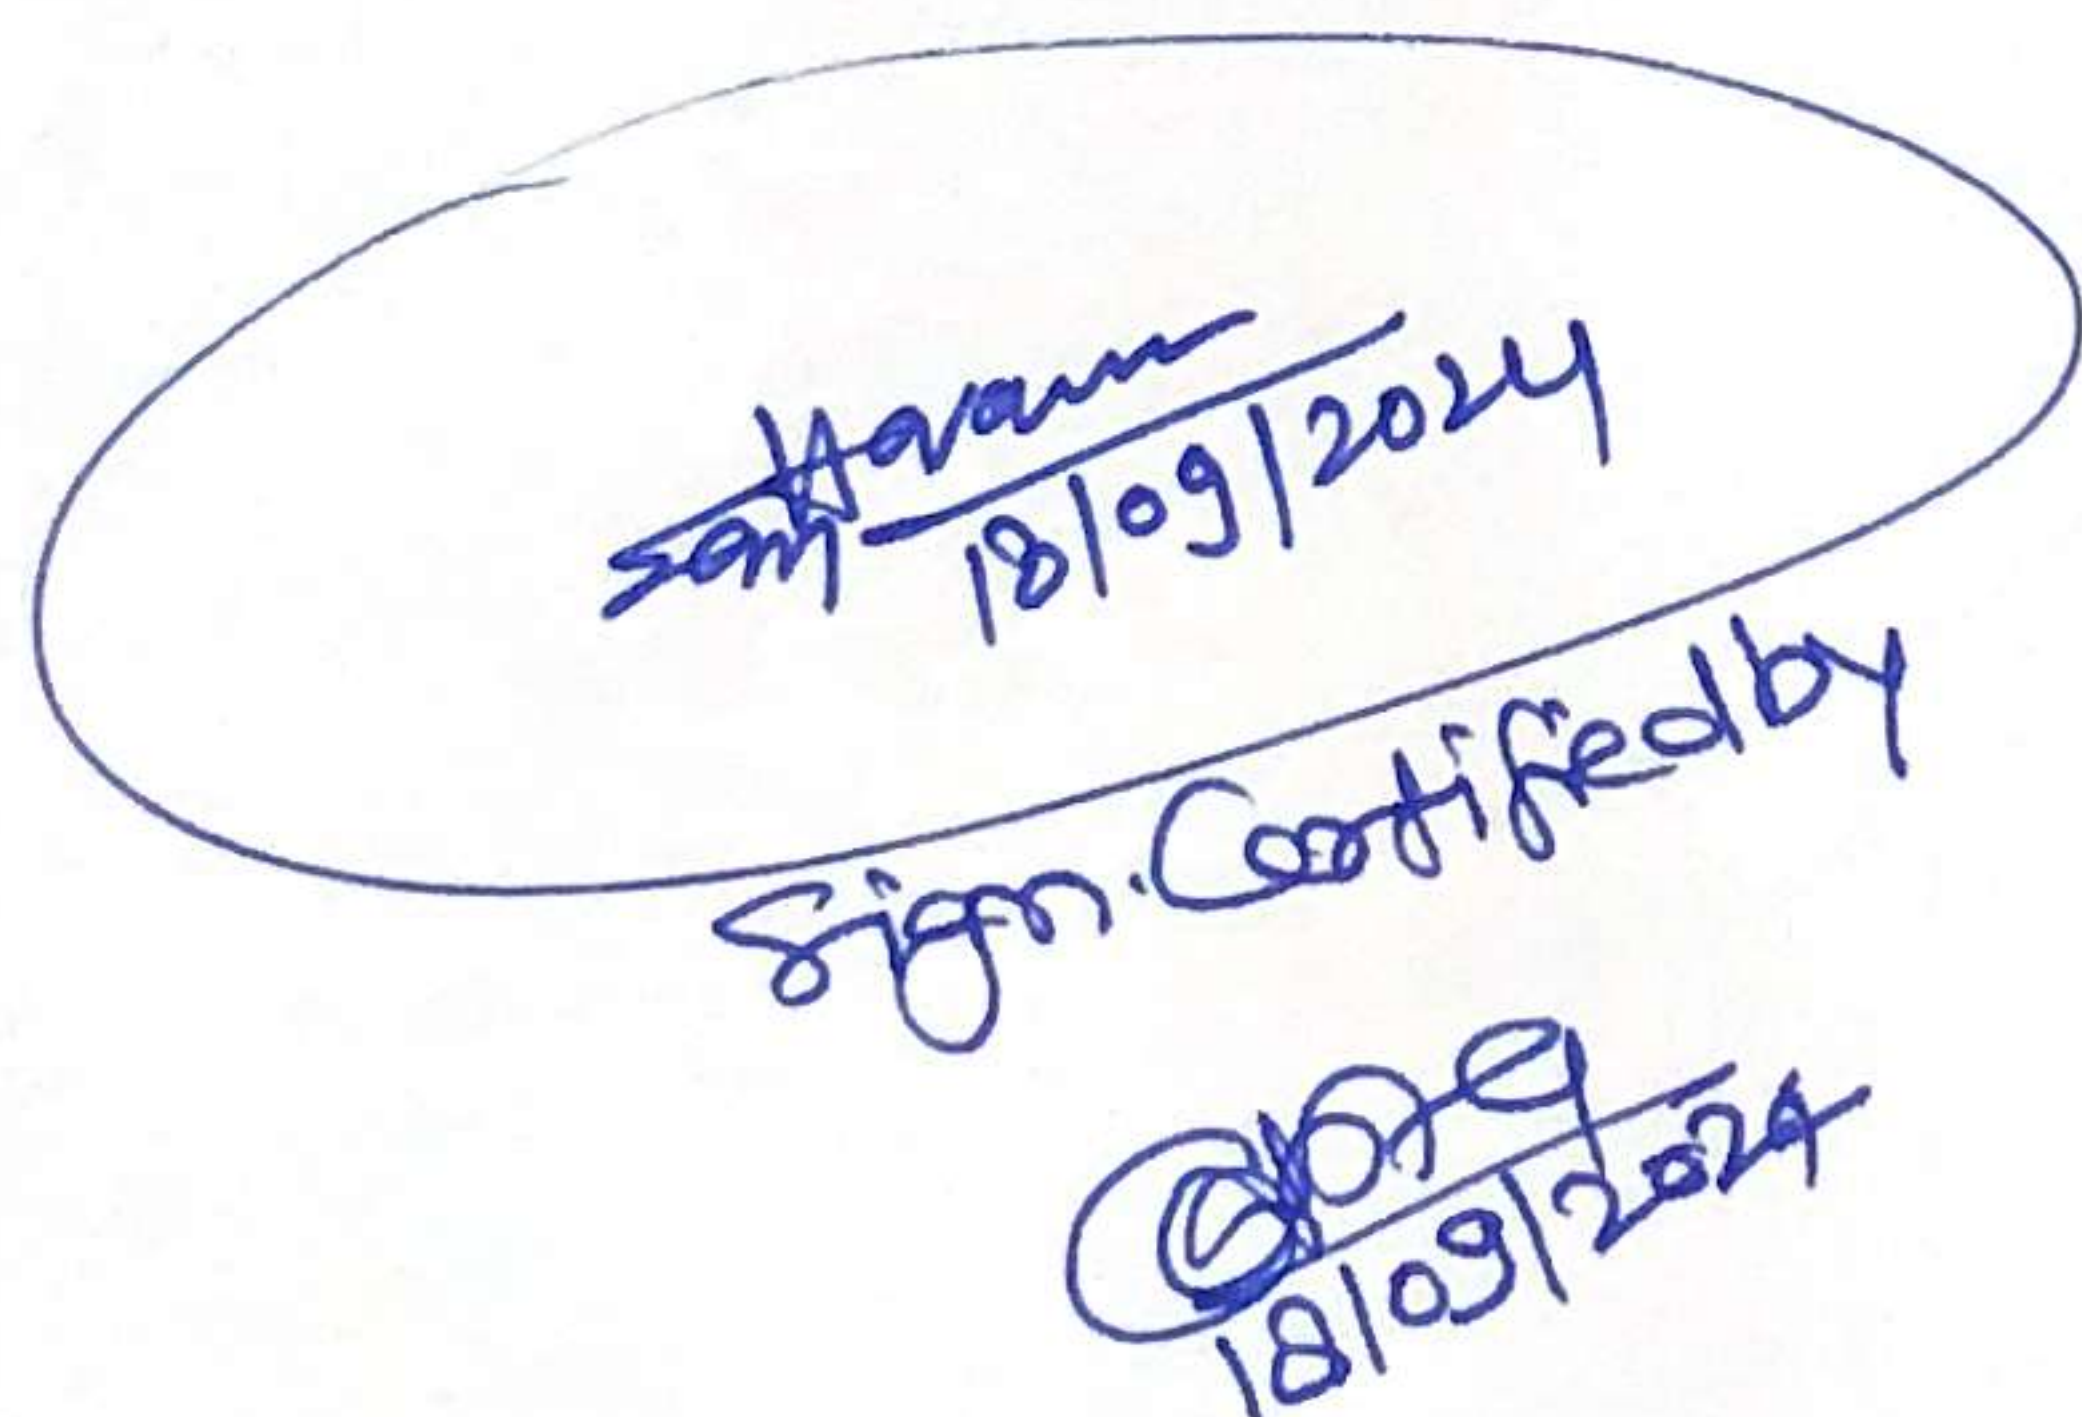 18/09/2024
Sign. Certified by
18/09/2024